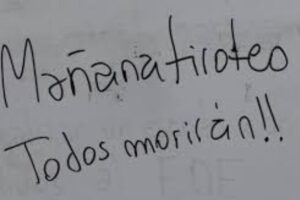 Mañana tiroteo
Todos morirán!!